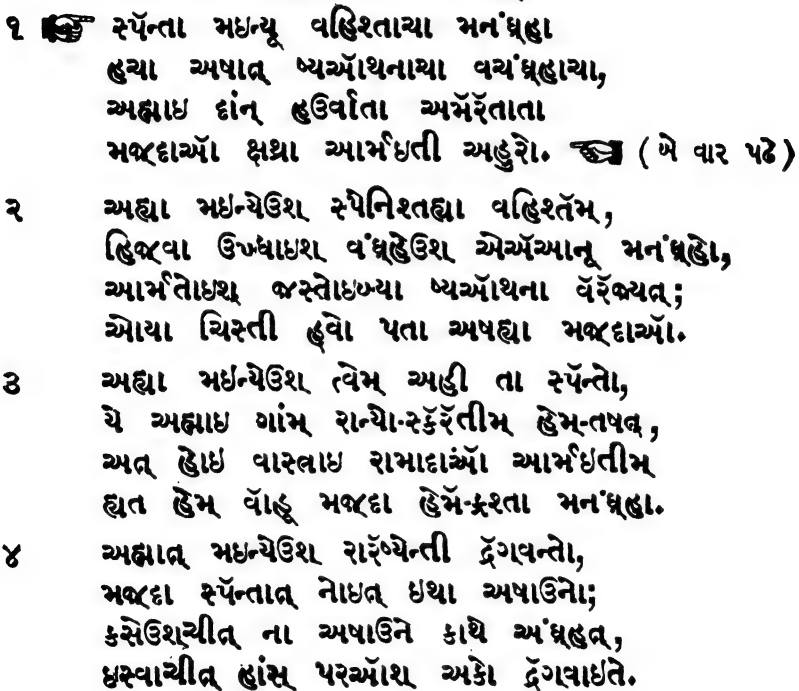 ૧ ☞ સ્પૅન્તા મઇન્યૂ વહિશ્તાચા મનંઘ્હા
હચા અષાત્ ષ્યઑથનાચા વચંઘ્હાચા,
અહ્માઇ દાંન્ હઉર્વાતા અમૅરૅતાતા
મજ્દાઑ ક્ષથ્રા આર્મઇતી અહુરો. ☜ (બે વાર પઢે)
૨ અહ્યા મઇન્યેઉશ્ સ્પેનિશ્તહ્યા વહિશ્તૅમ્,
હિજ્વા ઉખ્ધાઇશ્ વંઘ્હેઉશ્ એઍઆનૂ મનંઘ્હો,
આર્મતોઇશ્ જસ્તોઇબ્યા ષ્યઑથના વૅરૅજ્યત્;
ઓયા ચિસ્તી હ્વો પતા અષહ્યા મજ્દાઑ.
૩ અહ્યા મઇન્યેઉશ્ ત્વેમ્ અહી તા સ્પૅન્તો,
યે અહ્માઇ ગાંમ્ રાન્યો-સ્કૅરૅતીમ્ હેમ્-તષત્,
અત્ હોઇ વાસ્ત્રાઇ રામાદાઑ આર્મઇતીમ્
હ્યત હેમ્ વૉહૂ મજ્દા હેમૅ-ફ્રશ્તા મનંઘ્હા.
૪ અહ્માત્ મઇન્યેઉશ્ રારૅષ્યેન્તી દ્રૅગવન્તો,
મજ્દા સ્પૅન્તાત્ નોઇત્ ઇથા અષાઉનો;
કસેઉશ્ચીત્ ના અષાઉને કાથે અંઘ્હત્,
ઇસ્વાચીત્ હાંસ્ પરઑશ્ અકો દ્રૅગવાઇતે.